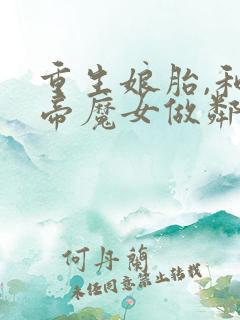 重生娘胎,和
帝魔女做鄰
何丹蘭
未经同意禁止转载